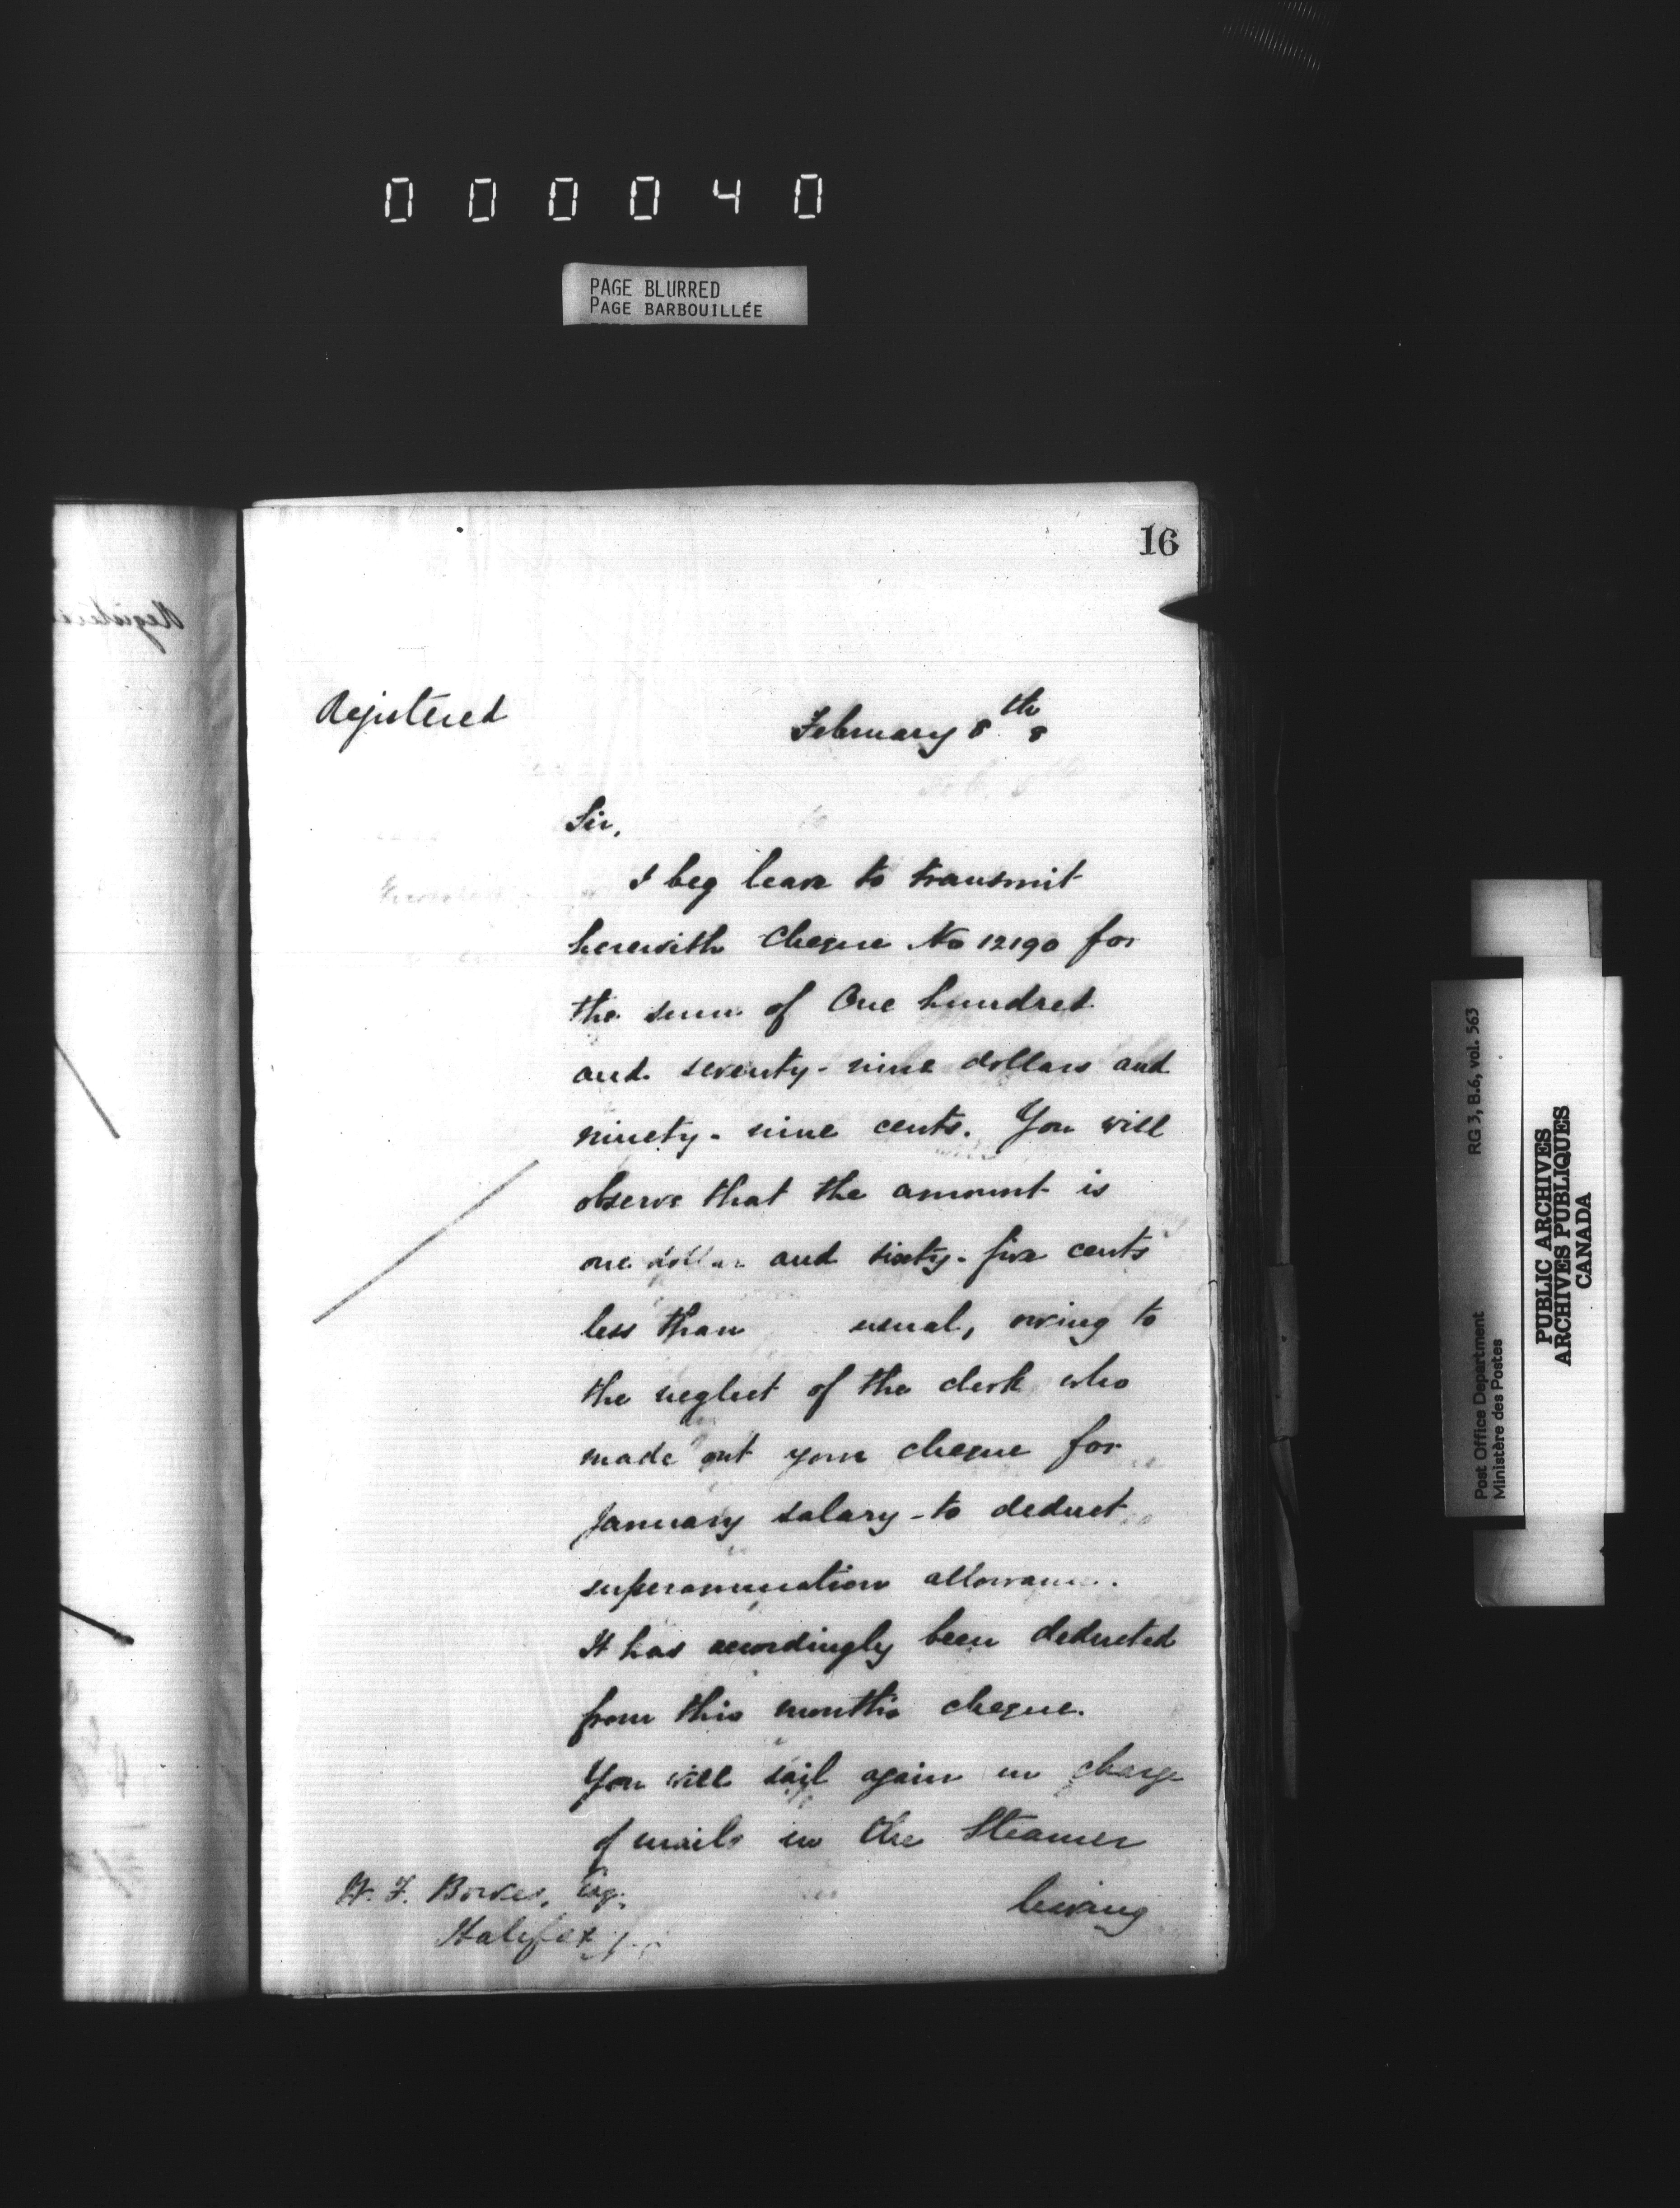 000040
PAGE BLURRED
PAGE BARBOUILLÉE
16
Registered
February 8th 8
Sir,
I beg leave to transmit
herewith cheque No 12190 for
the sum of One hundred
and seventy-nine dollars and
ninety-nine cents. You will
observe that the amount is
one dollar and sixty-five cents
less than usual, owing to
the neglect of the clerk who
made out your cheque for
January salary - to deduct
superannuation allowance.
It has accordingly been deducted
from this month's cheque.
You will sail again in charge
of mails in the Steamer
leaving
W. F. Bowes, Esq.
Halifax
RG 3, B.6, vol. 563
Post Office Department
Ministère des Postes
PUBLIC ARCHIVES
ARCHIVES PUBLIQUES
CANADA